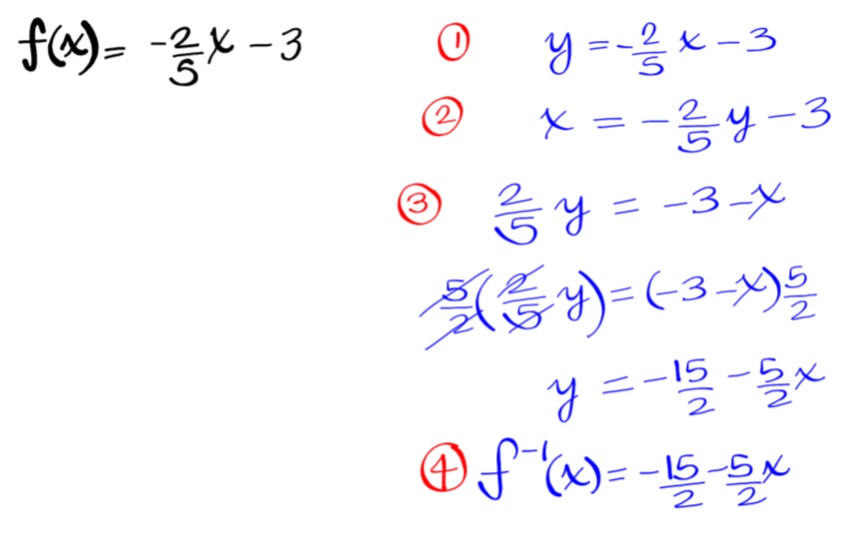 f(x) = -2/5 x - 3
① y = -2/5 x - 3
② x = -2/5 y - 3
③ 2/5 y = -3 - x
5/2 (2/5 y) = (-3 - x) 5/2
y = -15/2 - 5/2 x
④ f⁻¹(x) = -15/2 - 5/2 x